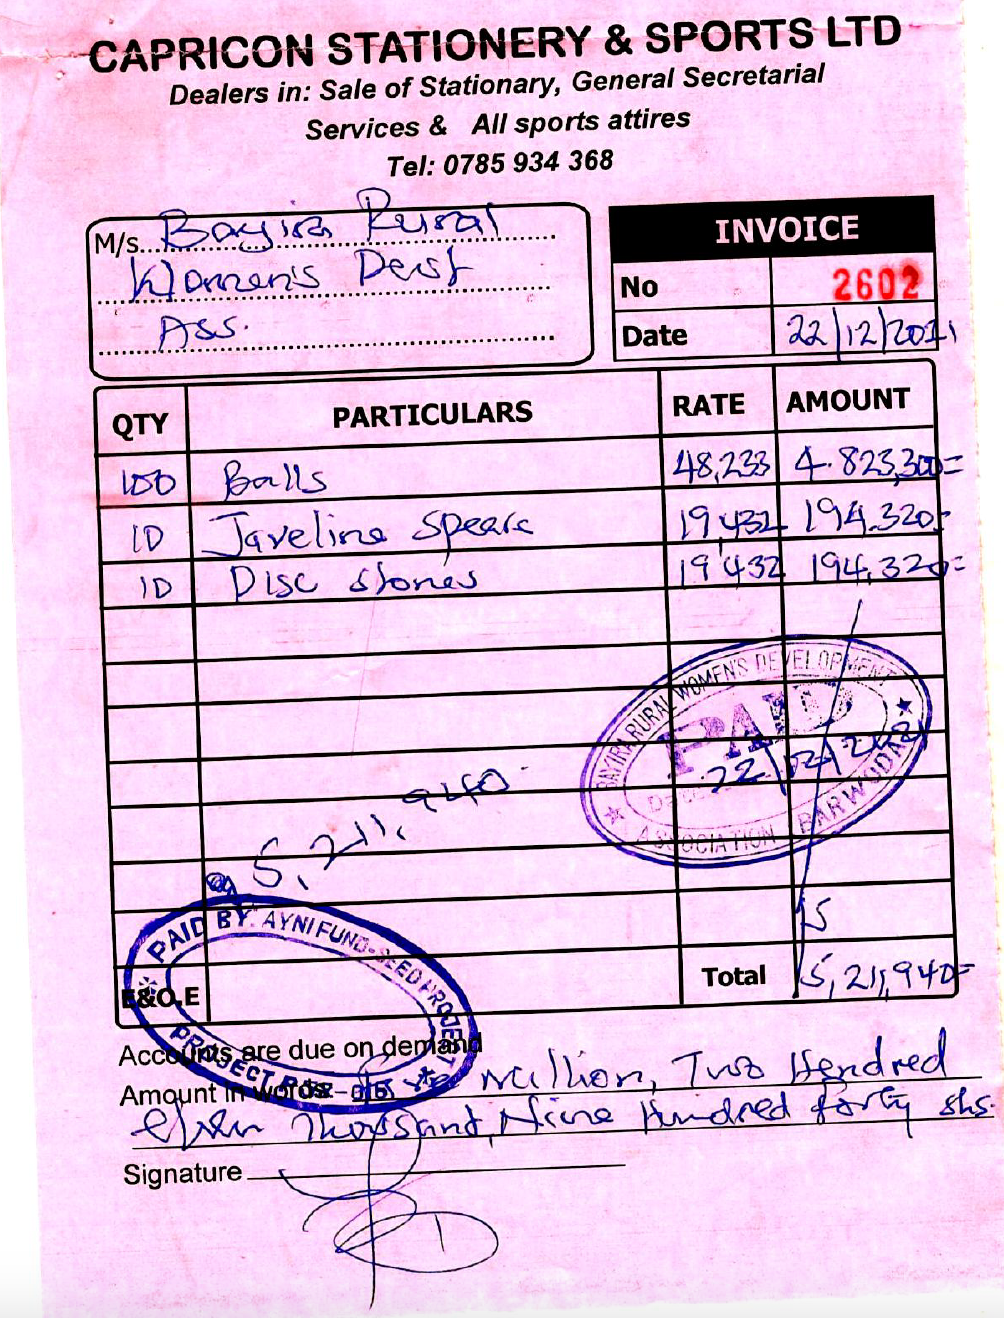 CAPRICON STATIONERY & SPORTS LTD
Dealers in: Sale of Stationary, General Secretarial
Services & All sports attires
Tel: 0785 934 368
M/s. Bayira Rural
Women's Devt
Ass.
INVOICE
No 2602
Date 22/12/2021
QTY PARTICULARS RATE AMOUNT
100 Balls 48,233 4.823,300=
10 Javeline Spears 19,432 194,320=
10 Disc stones 19,432 194,320=
BAYIRA RURAL WOMEN'S DEVELOPMENT
PAID
22/12/2021
ASSOCIATION BARWODA
5,211,940
PAID BY AYNI FUND-SEED PROJECT
PROJECT
E&O.E Total 5,211,940=
Accounts are due on demand
Amount in words Five million, Two Hundred
eleven Thousand, Nine Hundred forty shs.
Signature